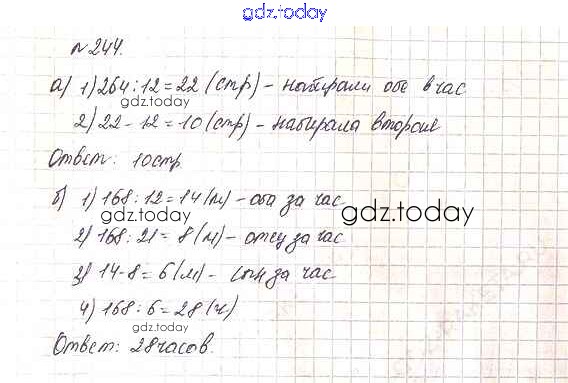 gdz.today
№244.
а) 1) 264:12=22 (стр) - набирали обе в час
gdz.today
2) 22-12=10 (стр) - набирала вторая
Ответ: 10стр
б) 1) 168:12=14 (м) - оба за час
gdz.today
gdz.today
2) 168:21=8 (м) - отец за час
3) 14-8=6 (м) - сын за час
4) 168:6=28 (ч)
gdz.today
Ответ: 28часов.